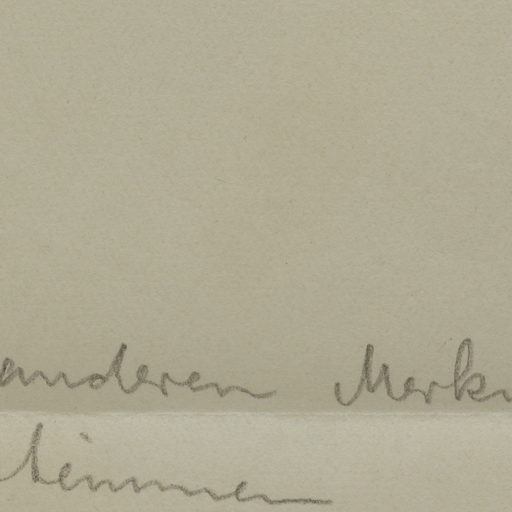 anderen Merk
timmen